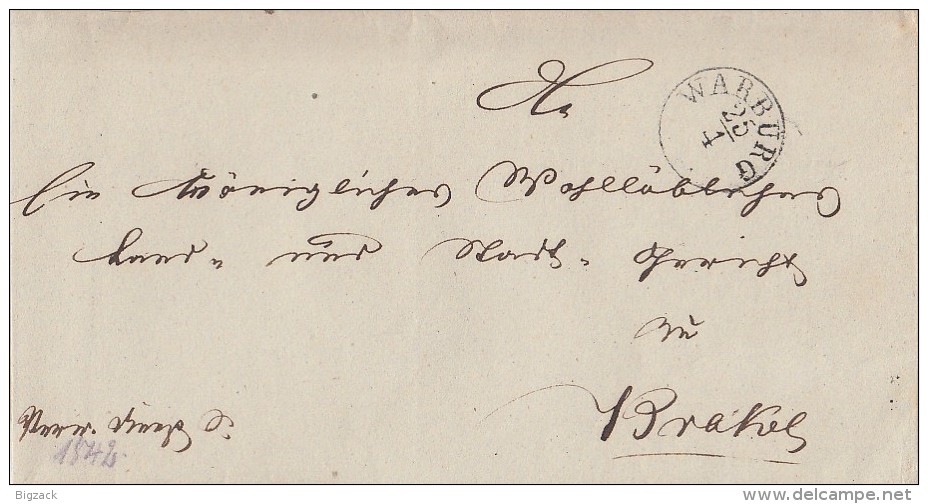 An
WARBURG
25
1
Ein Königliches Wohllöbliches
Land- und Stadt- Gericht
zu
Brakel
1842.
Bigzack
www.delcampe.net